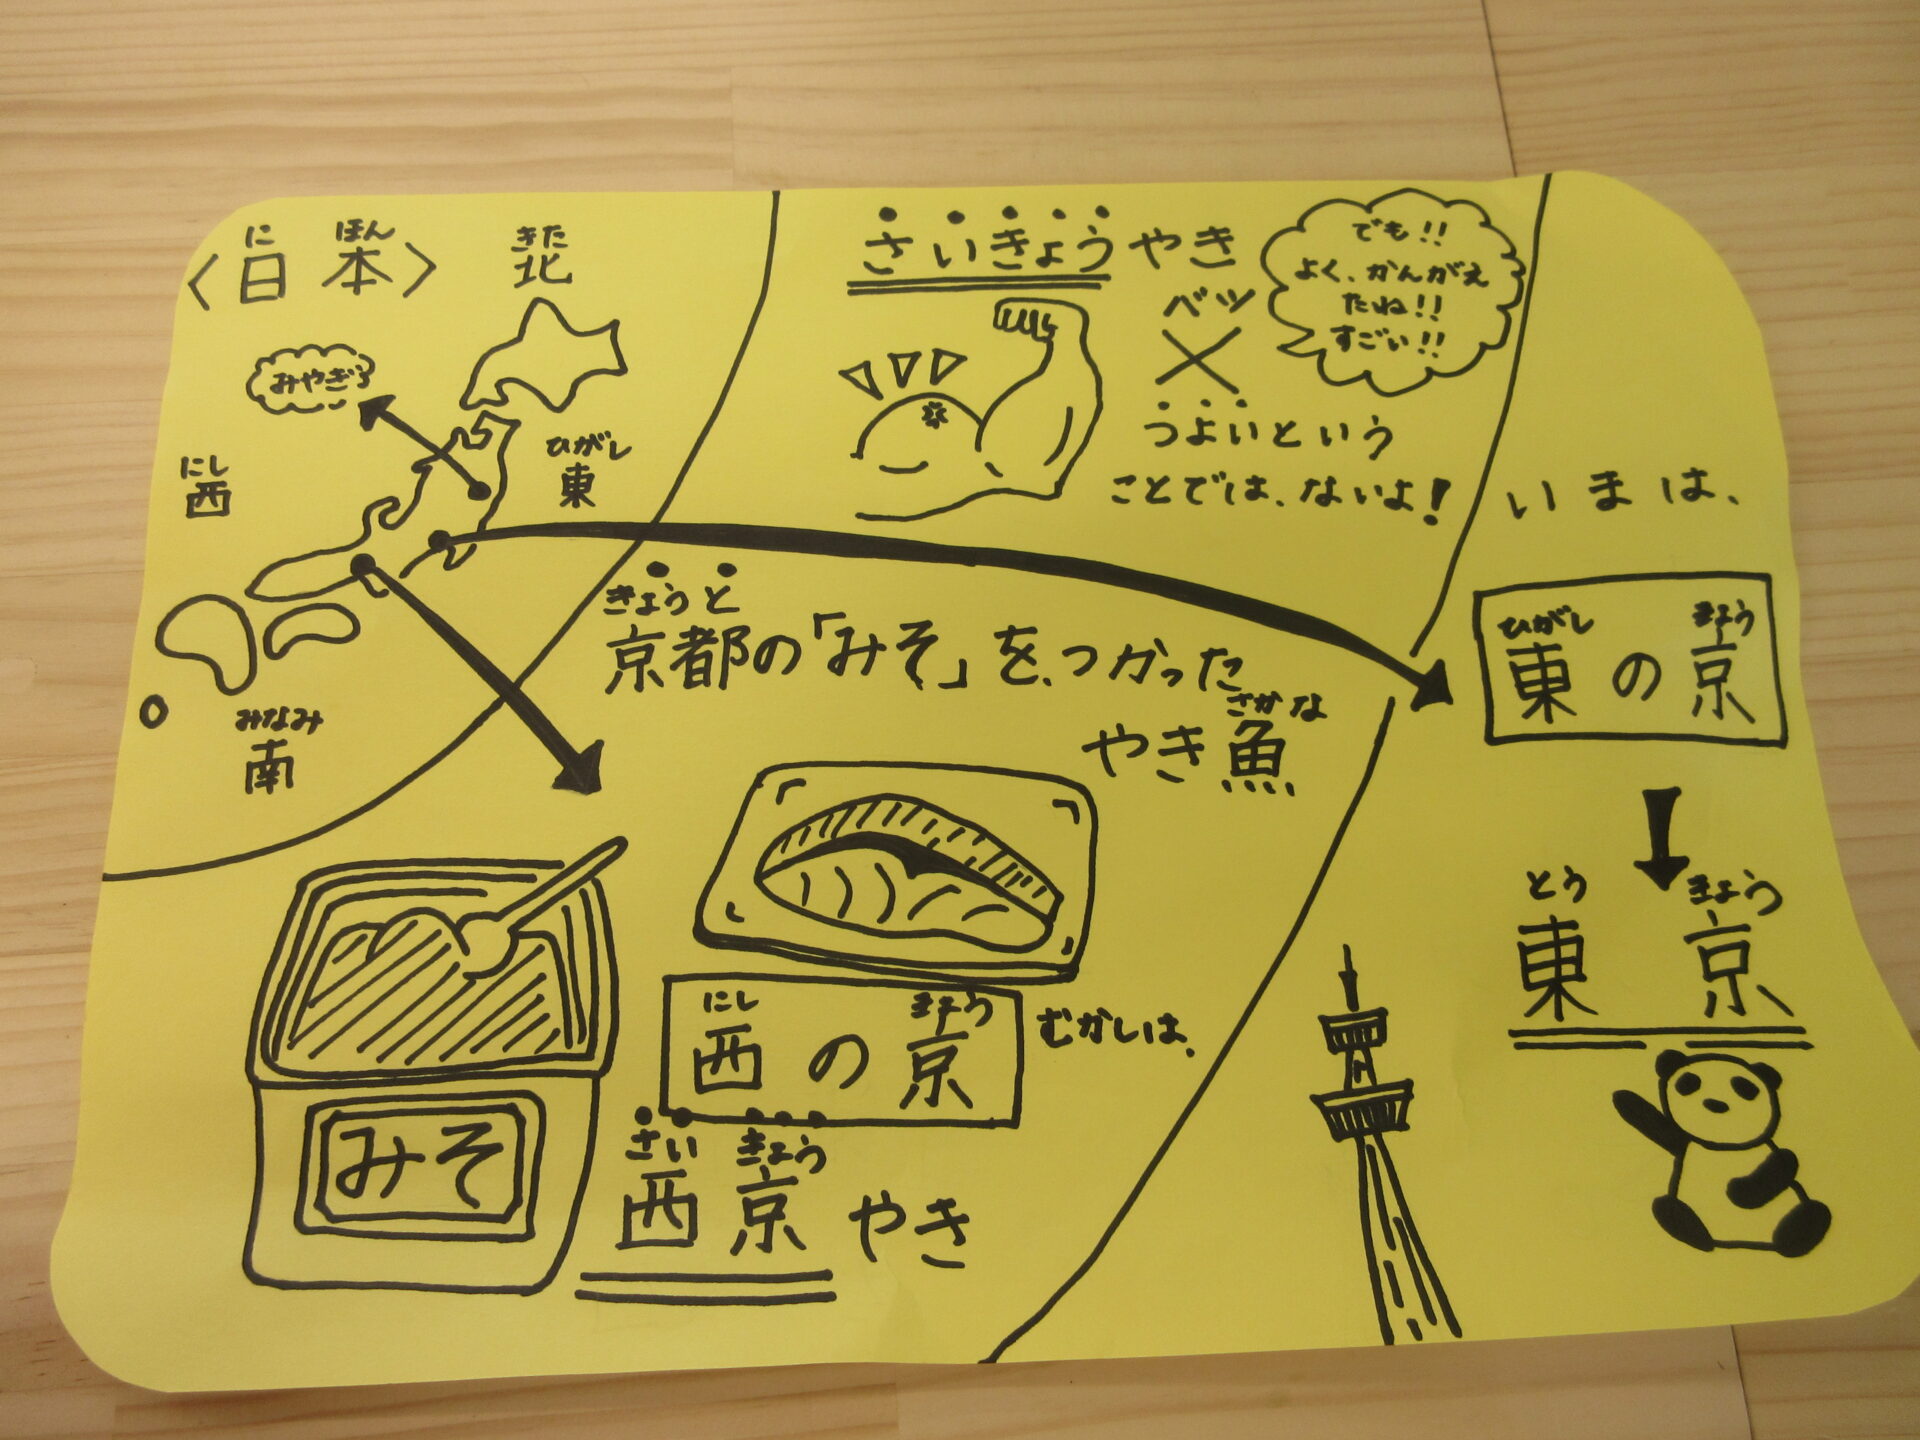 〈日本〉
にほん
きた
北
みやぎ
にし
西
ひがし
東
みなみ
南
さいきょうやき
バツ
でも!!
よく、かんがえ
たね!!
すごい!!
つよいという
ことでは、ないよ!
きょうと
京都の「みそ」を、つかった
さかな
やき魚
みそ
むかしは、
にし きょう
西の京
さい きょう
西京やき
いまは、
ひがし きょう
東の京
とう きょう
東京